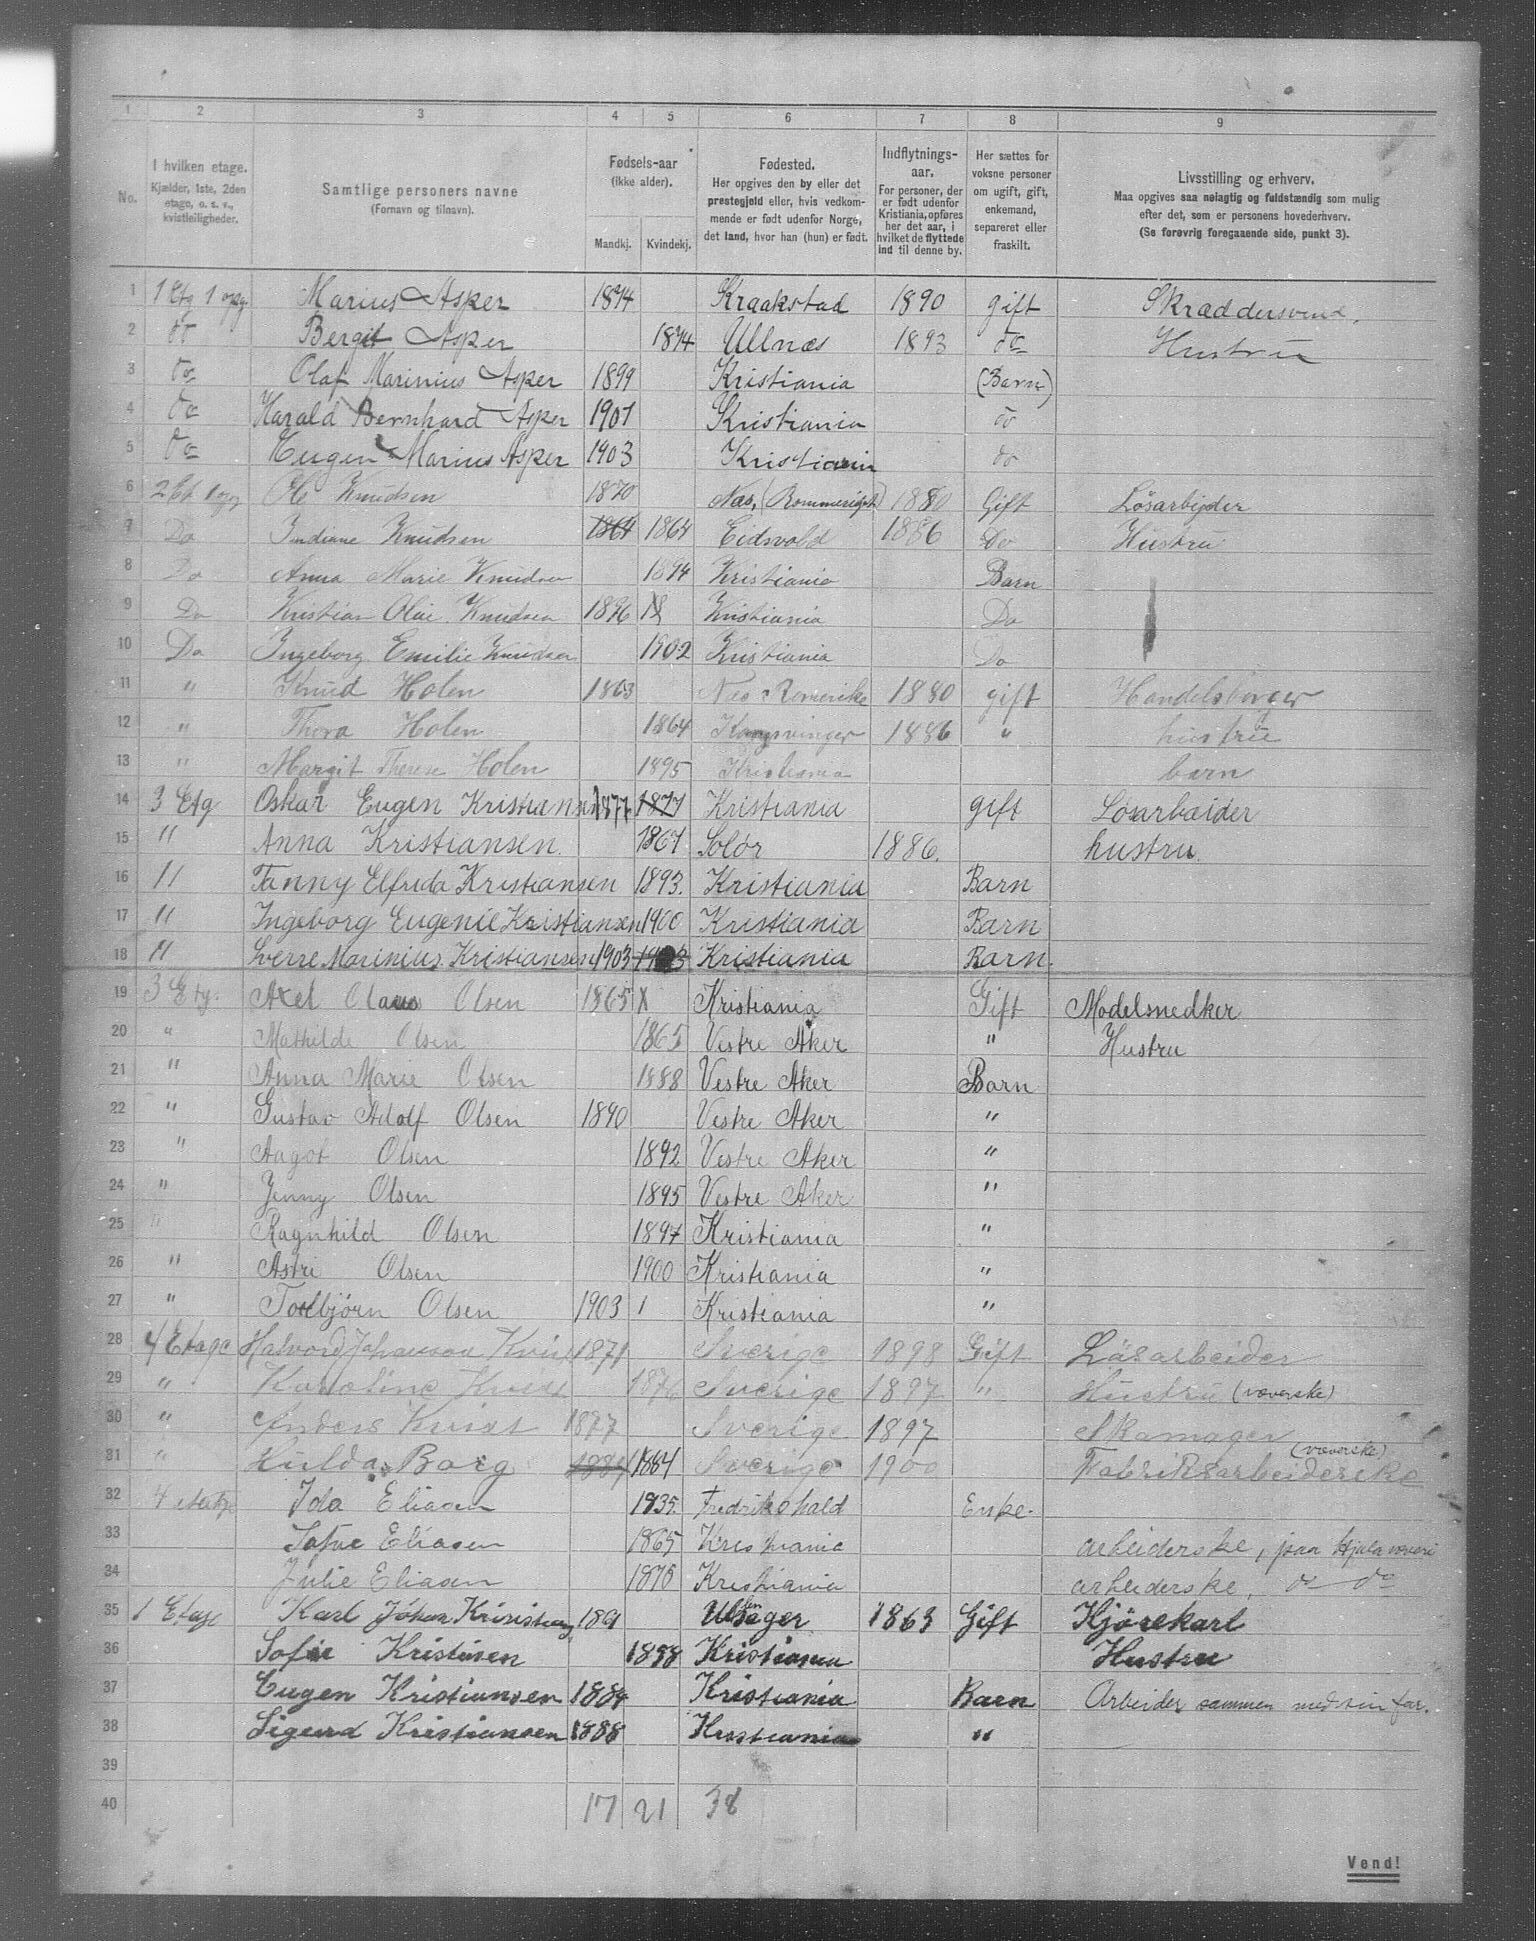 1 2 3 4 5 6 7 8 9
No. I hvilken etage. Kjælder, 1ste, 2den etage, o. s. v., kvistleiligheder. Samtlige personers navne (Fornavn og tilnavn). Fødsels-aar (ikke alder). Mandkj. Kvindekj. Fødested. Her opgives den by eller det prestegjeld eller, hvis vedkommende er født udenfor Norge, det land, hvor han (hun) er født. Indflytnings-aar. For personer, der er født udenfor Kristiania, opføres her det aar, i hvilket de flyttede ind til denne by. Her sættes for voksne personer om ugift, gift, enkemand, separeret eller fraskilt. Livsstilling og erhverv. Maa opgives saa nøiagtig og fuldstændig som mulig efter det, som er personens hovederhverv. (Se forøvrig foregaaende side, punkt 3).
1 1 Etg 1 opg. Marius Asper 1874 Kraakstad 1890 gift Skræddersvend.
2 do Bergit Asper 1874 Ullnæs 1893 do Hustru
3 do Olaf Marinius Asper 1899 Kristiania (Barn)
4 do Harald Bernhard Asper 1901 Kristiania do
5 do Eugen Marius Asper 1903 Kristiania do
6 2 Et 1 opg Ole Knudsen 1870 Næs, (Rommeriget) 1880 Gift Løsarbeider
7 Do Indiane Knudsen 1864 1864 Eidsvold 1886 Do Hustru
8 Do Anna Marie Knudsen 1894 Kristiania Barn
9 Do Kristian Olai Knudsen 1896 18 Kristiania Do
10 Do Ingeborg Emilie Knudsen 1902 Kristiania Do
11 " Knud Holen 1863 Næs Romerike 1880 gift Handelsborger
12 " Thora Holen 1864 Kongsvinger 1886 " hustru
13 " Margit Therese Holen 1895 Kristiania barn
14 3 Etg Oskar Eugen Kristiansen 1877 1877 Kristiania gift Løsarbeider
15 " Anna Kristiansen. 1867 Solør 1886. hustru.
16 " Fanny Elfrida Kristiansen 1893. Kristiania Barn
17 " Ingeborg Eugenie Kristiansen 1900 Kristiania Barn
18 " Sverre Marinius Kristiansen 1903 1903 Kristiania Barn.
19 3 Etg. Axel Olaus Olsen 1865 X Kristiania Gift Modelsnedker
20 " Mathilde Olsen 1865 Vestre Aker " Hustru
21 " Anna Marie Olsen 1888 Vestre Aker Barn
22 " Gustav Adolf Olsen 1890 Vestre Aker "
23 " Aagot Olsen 1892 Vestre Aker "
24 " Jenny Olsen 1895 Vestre Aker "
25 " Ragnhild Olsen 1897 Kristiania "
26 " Astri Olsen 1900 Kristiania "
27 " Torbjørn Olsen 1903 1 Kristiania "
28 4 Etage Halvord Johanson Kvist 1871 Sverige 1898 Gift Løsarbeider
29 " Karoline Kvist 1876 Sverige 1897 " Hustru (væverske)
30 " Anders Kvist 1877 Sverige 1897 Skomager
31 " Hulda Borg 1884 1884 Sverige 1900 Fabriksarbeiderske (væverske)
32 4 etatge Ida Eliasen 1835. Fredrikshald Enke.
33 Sofie Eliasen 1865 Kristiania arbeiderske, paa Hjula væveri
34 Julie Eliasen 1875 Kristiania arbeiderske, do do
35 1 Etage Karl Johan Kristiansen Ullensager 1863 Gift Kjørekarl
36 Sofie Kristiansen 1858 Kristiania Hustru
37 Eugen Kristiansen 1884 Kristiania Barn Arbeider sammen med sin far.
38 Sigurd Kristiansen 1888 Kristiania "
39
40 17 21 38
Vend!